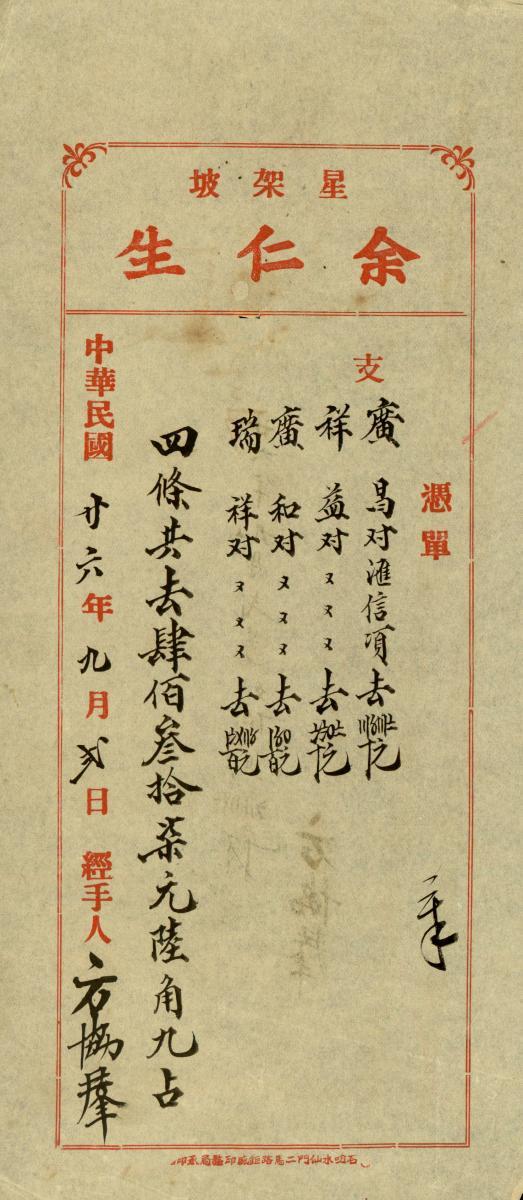 星架坡
余仁生
憑單
支
廣昌对滙信項去
祥益对〃〃〃去
廣和对〃〃〃去
瑞祥对〃〃〃去
四條共去肆佰叁拾柒元陸角九占
中華民國廿六年九月弍日經手人方協